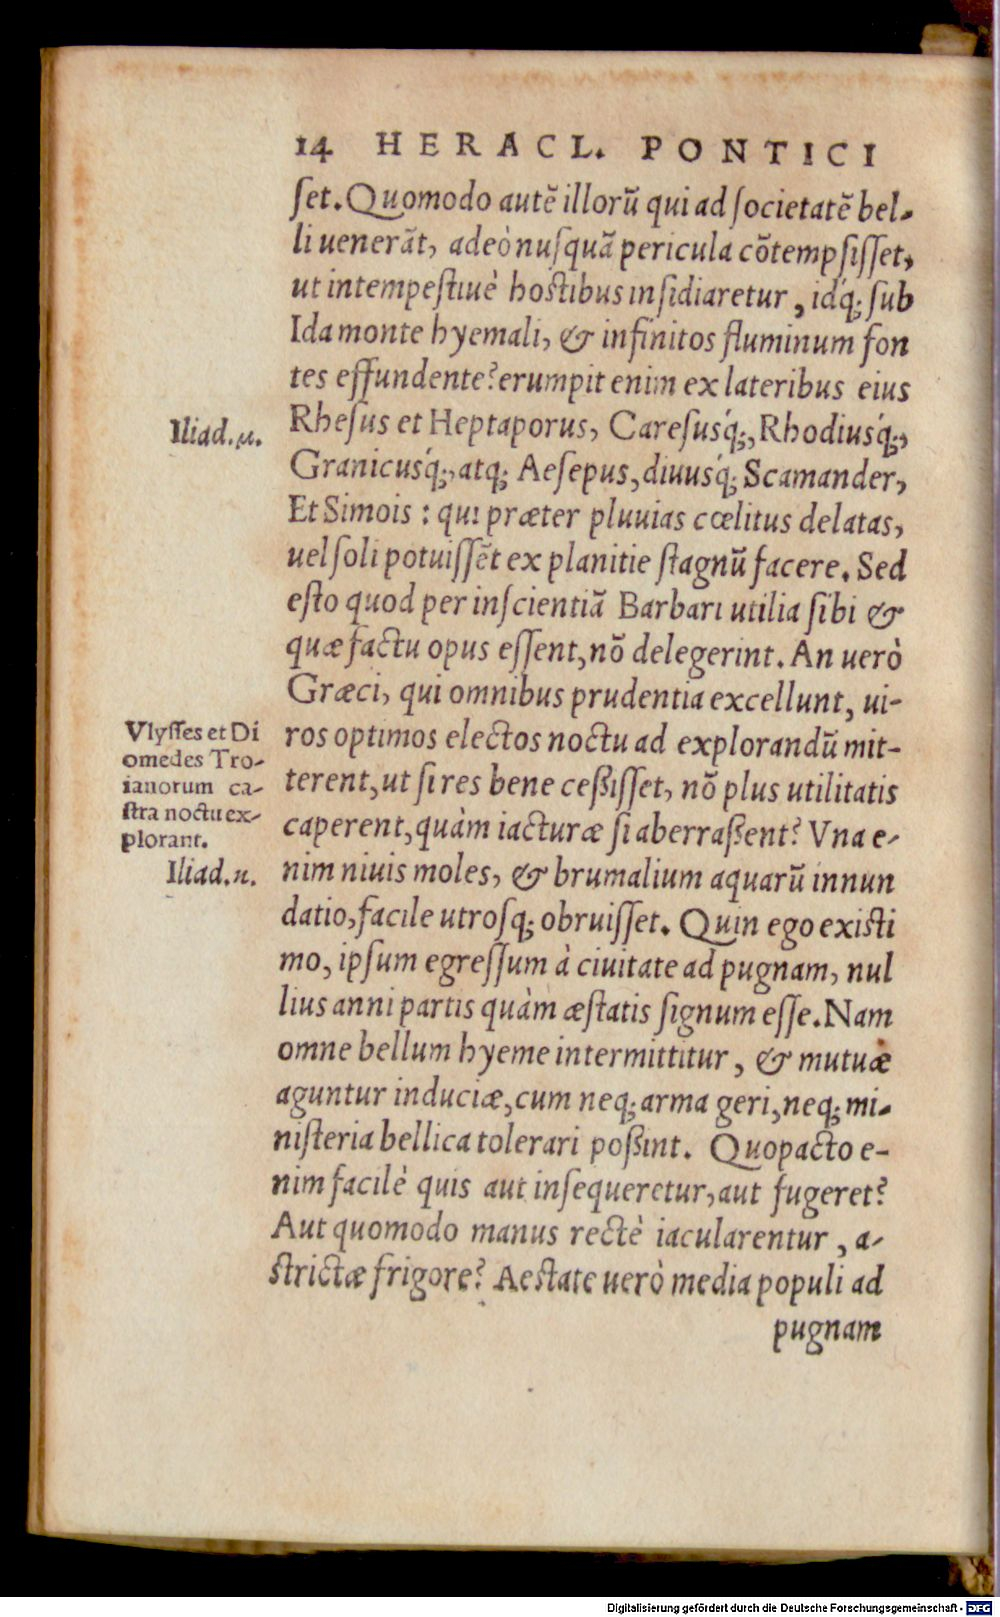 14 HERACL. PONTICI
ſet. Quomodo autē illorū qui ad ſocietatē bel-
li uenerāt, adeò nuſquā pericula cōtempſiſſet,
ut intempeſtiuè hoſtibus inſidiaretur, idq́; ſub
Ida monte hyemali, & infinitos fluminum fon
tes effundente? erumpit enim ex lateribus eius
Iliad.μ.
Rheſus et Heptaporus, Careſusq́;, Rhodiusq́;,
Granicusq́;, atq; Aeſepus, diuusq́; Scamander,
Et Simois: qui præter pluuias cœlitus delatas,
uel ſoli potuiſſēt ex planitie ſtagnū facere. Sed
eſto quod per inſcientiā Barbari utilia ſibi &
quæ factu opus eſſent, nō delegerint. An uerò
Græci, qui omnibus prudentia excellunt, ui-
Vlyſſes et Di
omedes Tro-
ianorum ca-
ſtra noctu ex-
plorant.
ros optimos electos noctu ad explorandū mit-
terent, ut ſi res bene ceßiſſet, nō plus utilitatis
caperent, quàm iacturæ ſi aberraßent? Vna e-
Iliad.u.
nim niuis moles, & brumalium aquarū innun
datio, facile utroſq; obruiſſet. Quin ego exiſti
mo, ipſum egreſſum à ciuitate ad pugnam, nul
lius anni partis quàm æſtatis ſignum eſſe. Nam
omne bellum hyeme intermittitur, & mutuæ
aguntur induciæ, cum neq; arma geri, neq; mi-
niſteria bellica tolerari poßint. Quopacto e-
nim facilè quis aut inſequeretur, aut fugeret?
Aut quomodo manus rectè iacularentur, a-
ſtrictæ frigore? Aeſtate uerò media populi ad
pugnam
Digitalisierung gefördert durch die Deutsche Forschungsgemeinschaft - DFG